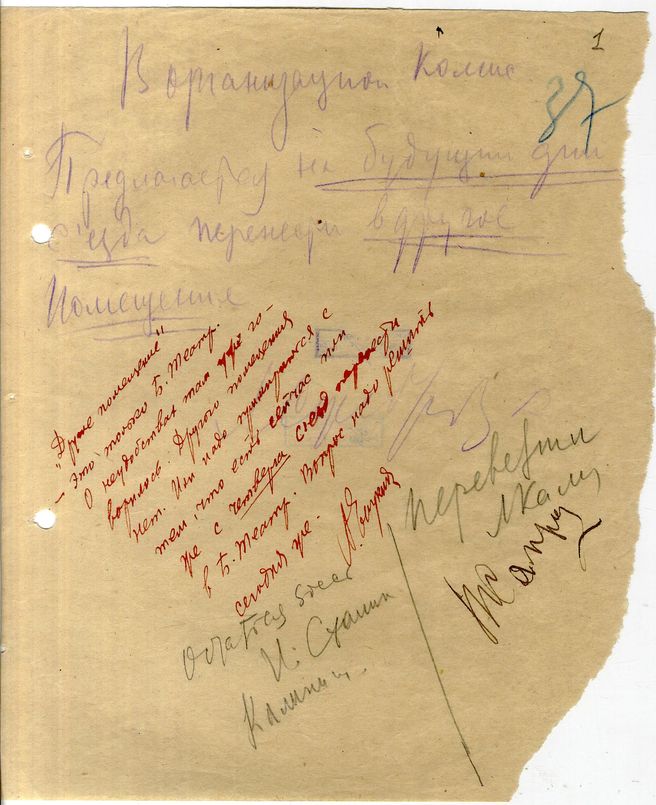 1
В организацион комис
37
Предлагаю на будущии дни
с'езда перенести в другое
помещение
"Другое помещение"
– это только Б. Театр.
О неудобствах там уже го-
ворилось. Другого помещения
нет. Или надо примириться с
тем, что есть сейчас или
же с четверга съезд перенести
в Б. Театр. Вопрос надо решить
сегодня же.
А. Енукидзе
перевезти
остаться здесь
И. Сталин
Калинин